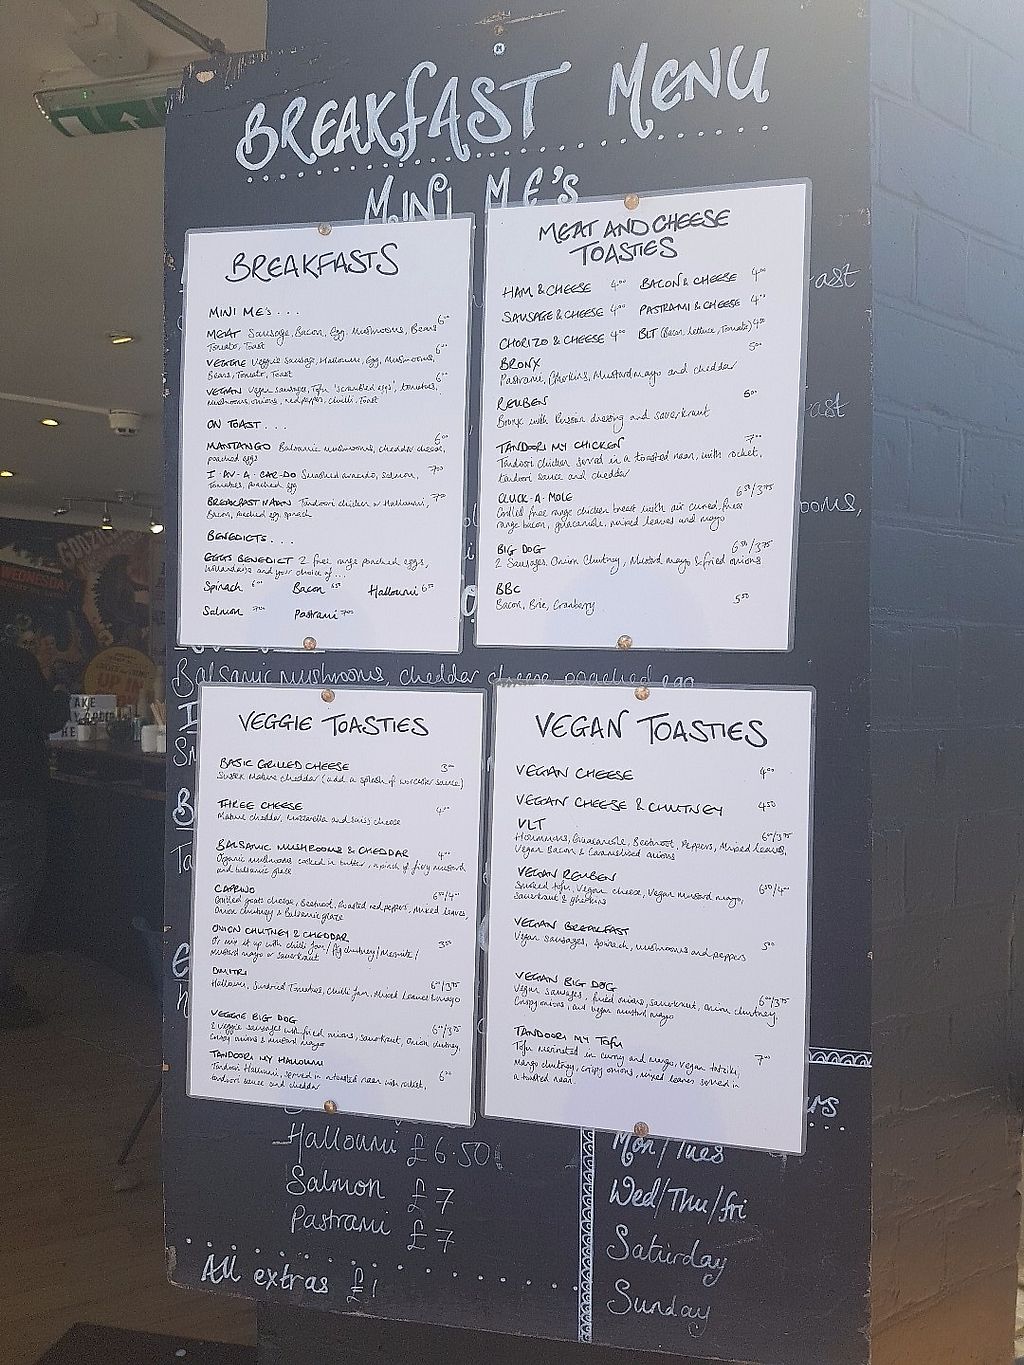 BREAKFAST MENU
MINI ME'S
BREAKFASTS
MINI ME'S . . .
MEAT Sausage, Bacon, Egg, Mushrooms, Beans 6.00
Tomato, Toast
VEGGIE Veggie Sausage, Halloumi, Egg, Mushrooms, 6.00
Beans, Tomato, Toast
VEGAN Vegan Sausages, Tofu 'scrambled eggs', tomatoes, 6.00
mushrooms, onions, red pepper, chilli, Toast
ON TOAST . . .
MANTANGO Balsamic mushrooms, cheddar cheese, 6.00
poached eggs
I·AV·A·CAR·DO Smashed avocado, Salmon, 7.00
Tomatoes, poached egg
BREAKFAST NAAN Tandoori chicken or Halloumi,
Bacon, poached egg, spinach
BENEDICTS . . . .
EGGS BENEDICT 2 free range poached eggs,
hollandaise and your choice of ...
Spinach Bacon Halloumi 6.50
Salmon 7.00 Pastrami 7.00
MEAT AND CHEESE
TOASTIES
HAM & CHEESE 4.00 BACON & CHEESE 4.00
SAUSAGE & CHEESE 4.00 PASTRAMI & CHEESE
CHORIZO & CHEESE 4.00 BLT (Bacon, Lettuce, Tomato)
BRONX 5.00
Pastrami, Gherkins, Mustard mayo and cheddar
REUBEN
Bronx with Russian dressing and sauerkraut
TANDOORI MY CHICKEN 7.00
Tandoori chicken served in a toasted naan, with rocket,
tandoori sauce and cheddar
CLUCK-A-MOLE 6.50/3.75
Grilled free range chicken breast with air cured, free
range bacon, guacamole, mixed leaves and mayo
BIG DOG 6.50/3.75
2 Sausages, Onion Chutney, Mustard mayo & fried onions
BBC 5.50
Bacon, Brie, Cranberry
Balsamic mushrooms, cheddar cheese, poached egg
VEGGIE TOASTIES
BASIC GRILLED CHEESE 3.00
Sussex Mature cheddar (add a splash of worcester sauce)
THREE CHEESE
Mature cheddar, mozzarella and swiss cheese
BALSAMIC MUSHROOMS & CHEDDAR 4.00
Organic mushrooms cooked in butter, a pinch of fiery mustard
and balsamic glaze
CAPRINO
Grilled goats cheese, Beetroot, Roasted red peppers, Mixed Leaves,
Onion chutney & Balsamic glaze
ONION CHUTNEY & CHEDDAR 3.50
Or mix it up with chilli Jam/Fig chutney/Marmite/
Mustard mayo or sauerkraut
DMITRI 6.00/3.75
Halloumi, Sundried Tomatoes, Chilli Jam, Mixed Leaves & mayo
VEGGIE BIG DOG 6.00/3.75
2 Veggie sausages with fried onions, sauerkraut, onion chutney,
Crispy onions & mustard mayo
TANDOORI MY HALLOUMI
Tandoori Halloumi, served in a toasted naan with rocket,
tandoori sauce and cheddar
VEGAN TOASTIES
VEGAN CHEESE 4.00
VEGAN CHEESE & CHUTNEY 4.50
VLT 6.00/3.75
Hummus, Guacamole, Beetroot, Peppers, Mixed Leaves,
Vegan Bacon & Caramelised onions
VEGAN REUBEN 6.50/4.00
Smoked tofu, Vegan cheese, Vegan mustard mayo,
Sauerkraut & gherkins
VEGAN BREAKFAST 5.00
Vegan sausages, spinach, mushrooms and peppers
VEGAN BIG DOG 6.00/3.75
Vegan sausages, fried onions, sauerkraut, onion chutney,
Crispy onions, and vegan mustard mayo
TANDOORI MY TOFU 7.00
Tofu marinated in curry and mango, vegan tzatziki,
Mango chutney, crispy onions, mixed leaves served in
a toasted naan.
Halloumi £6.50
Salmon £7
Pastrami £7
All extras £1
Mon/Tues
Wed/Thu/Fri
Saturday
Sunday
WEDNESDAY